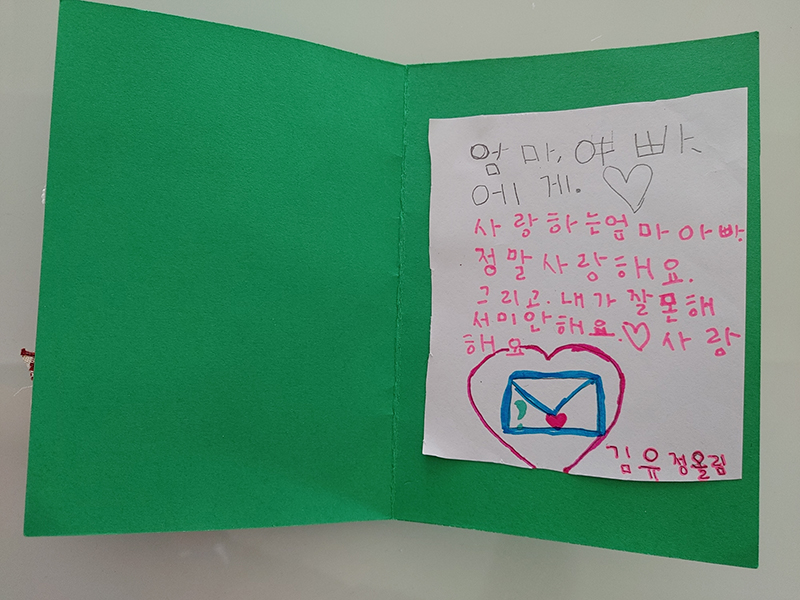 엄마, 아빠
에게. ♡
사랑하는엄마아빠.
정말사랑해요.
그리고. 내가잘못해
서미안해요.♡사랑
해요
김유정올림